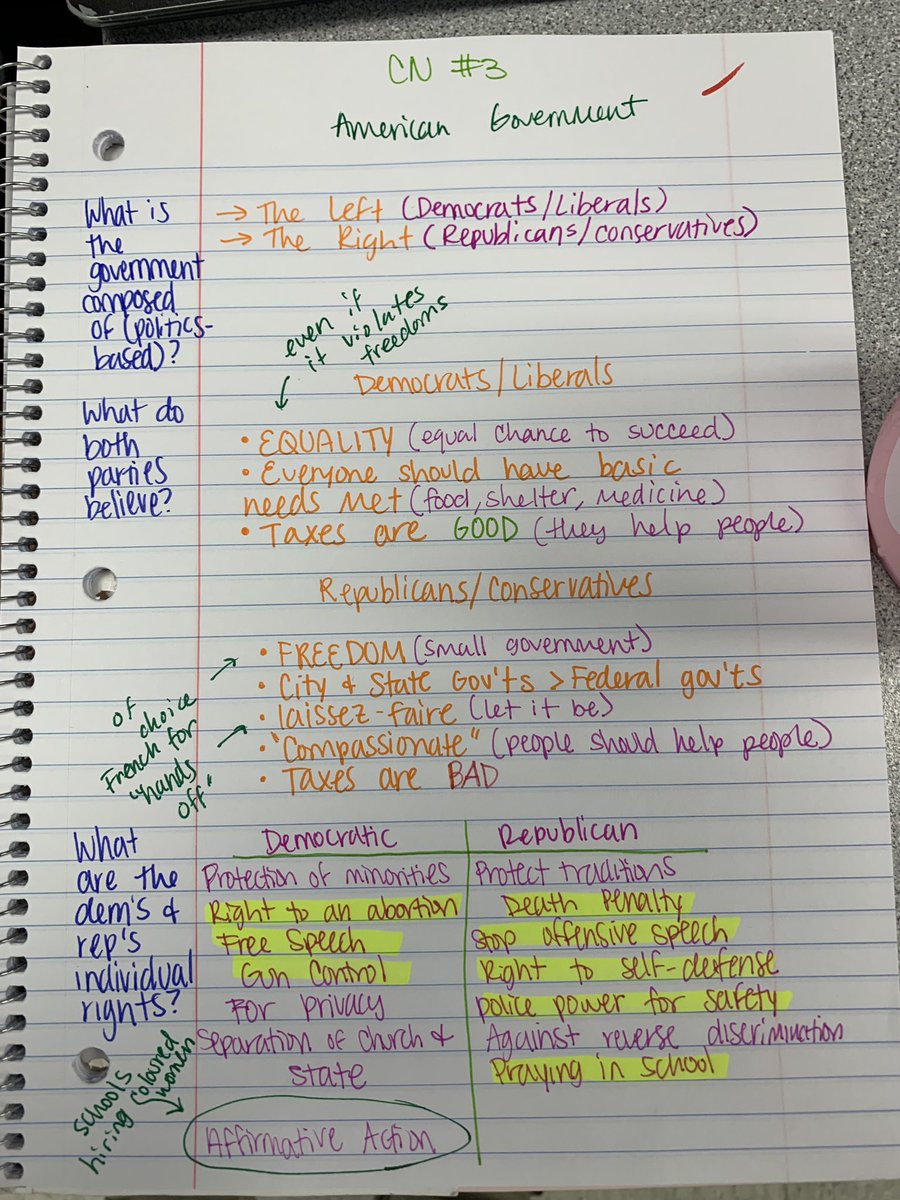 CN #3
American Government
What is
the
government
composed
of (politics-
based)?
→ The Left (Democrats/Liberals)
→ The Right (Republicans/conservatives)
even if
it violates
freedoms
Democrats/Liberals
What do
both
parties
believe?
• EQUALITY (equal chance to succeed)
• Everyone should have basic
needs met (food, shelter, medicine)
• Taxes are GOOD (they help people)
Republicans/Conservatives
• FREEDOM (small government)
• City & State Gov'ts > Federal gov'ts
• laissez-faire (let it be)
• "Compassionate" (people should help people)
• Taxes are BAD
of choice
French for
"hands
off"
What
are the
dem's &
rep's
individual
rights?
Democratic
Protection of minorities
Right to an abortion
Free Speech
Gun Control
For privacy
Separation of church &
state
Affirmative Action
Republican
Protect traditions
Death Penalty
Stop offensive speech
Right to self-defense
police power for safety
Against reverse discrimination
Praying in school
schools
hiring coloured
women